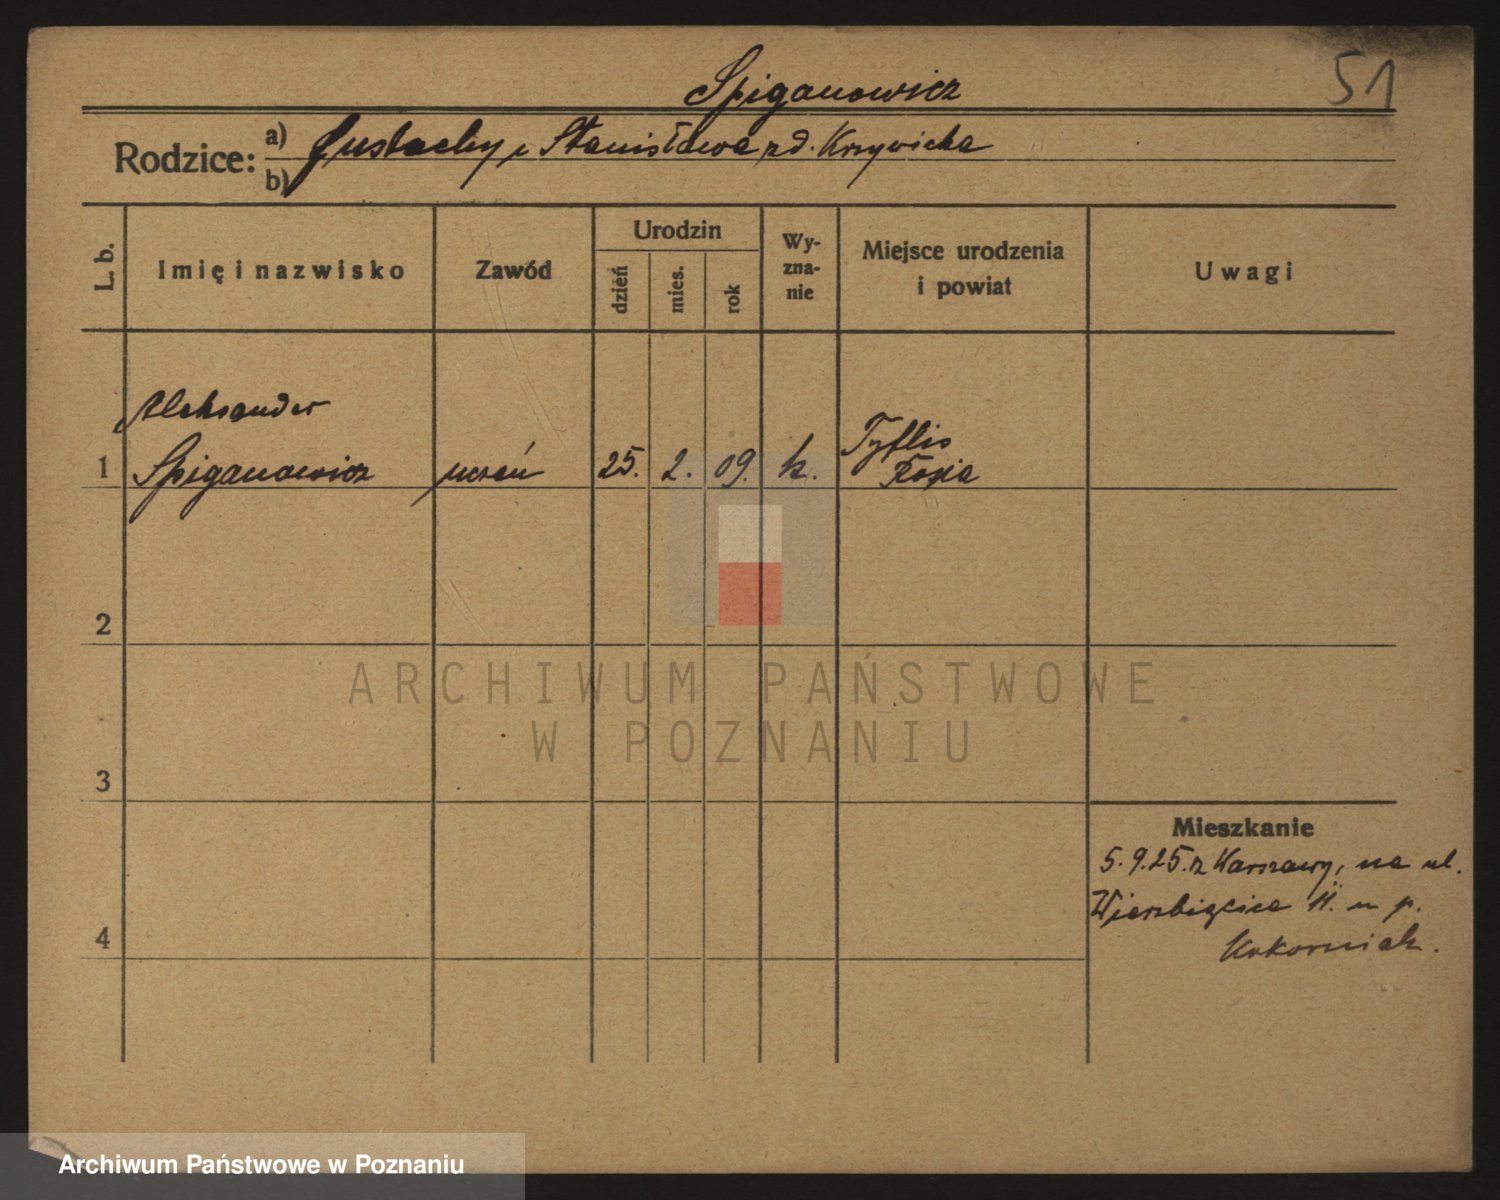 51
Spiganowicz
Rodzice: a) Gustachy i Stanisława zd. Krzywicka
b)
L. b.
Imię i nazwisko
Zawód
Urodzin
dzień
mies.
rok
Wy-
zna-
nie
Miejsce urodzenia
i powiat
Uwagi
Aleksander
1 Spiganowicz uczeń 25. 2. 09. k. Tyflis
Rosja
2
ARCHIWUM PAŃSTWOWE
W POZNANIU
3
Mieszkanie
5.9.25. z Warszawy, na ul.
Wierzbięcice 11. u p.
4
Kokorniak.
Archiwum Państwowe w Poznaniu